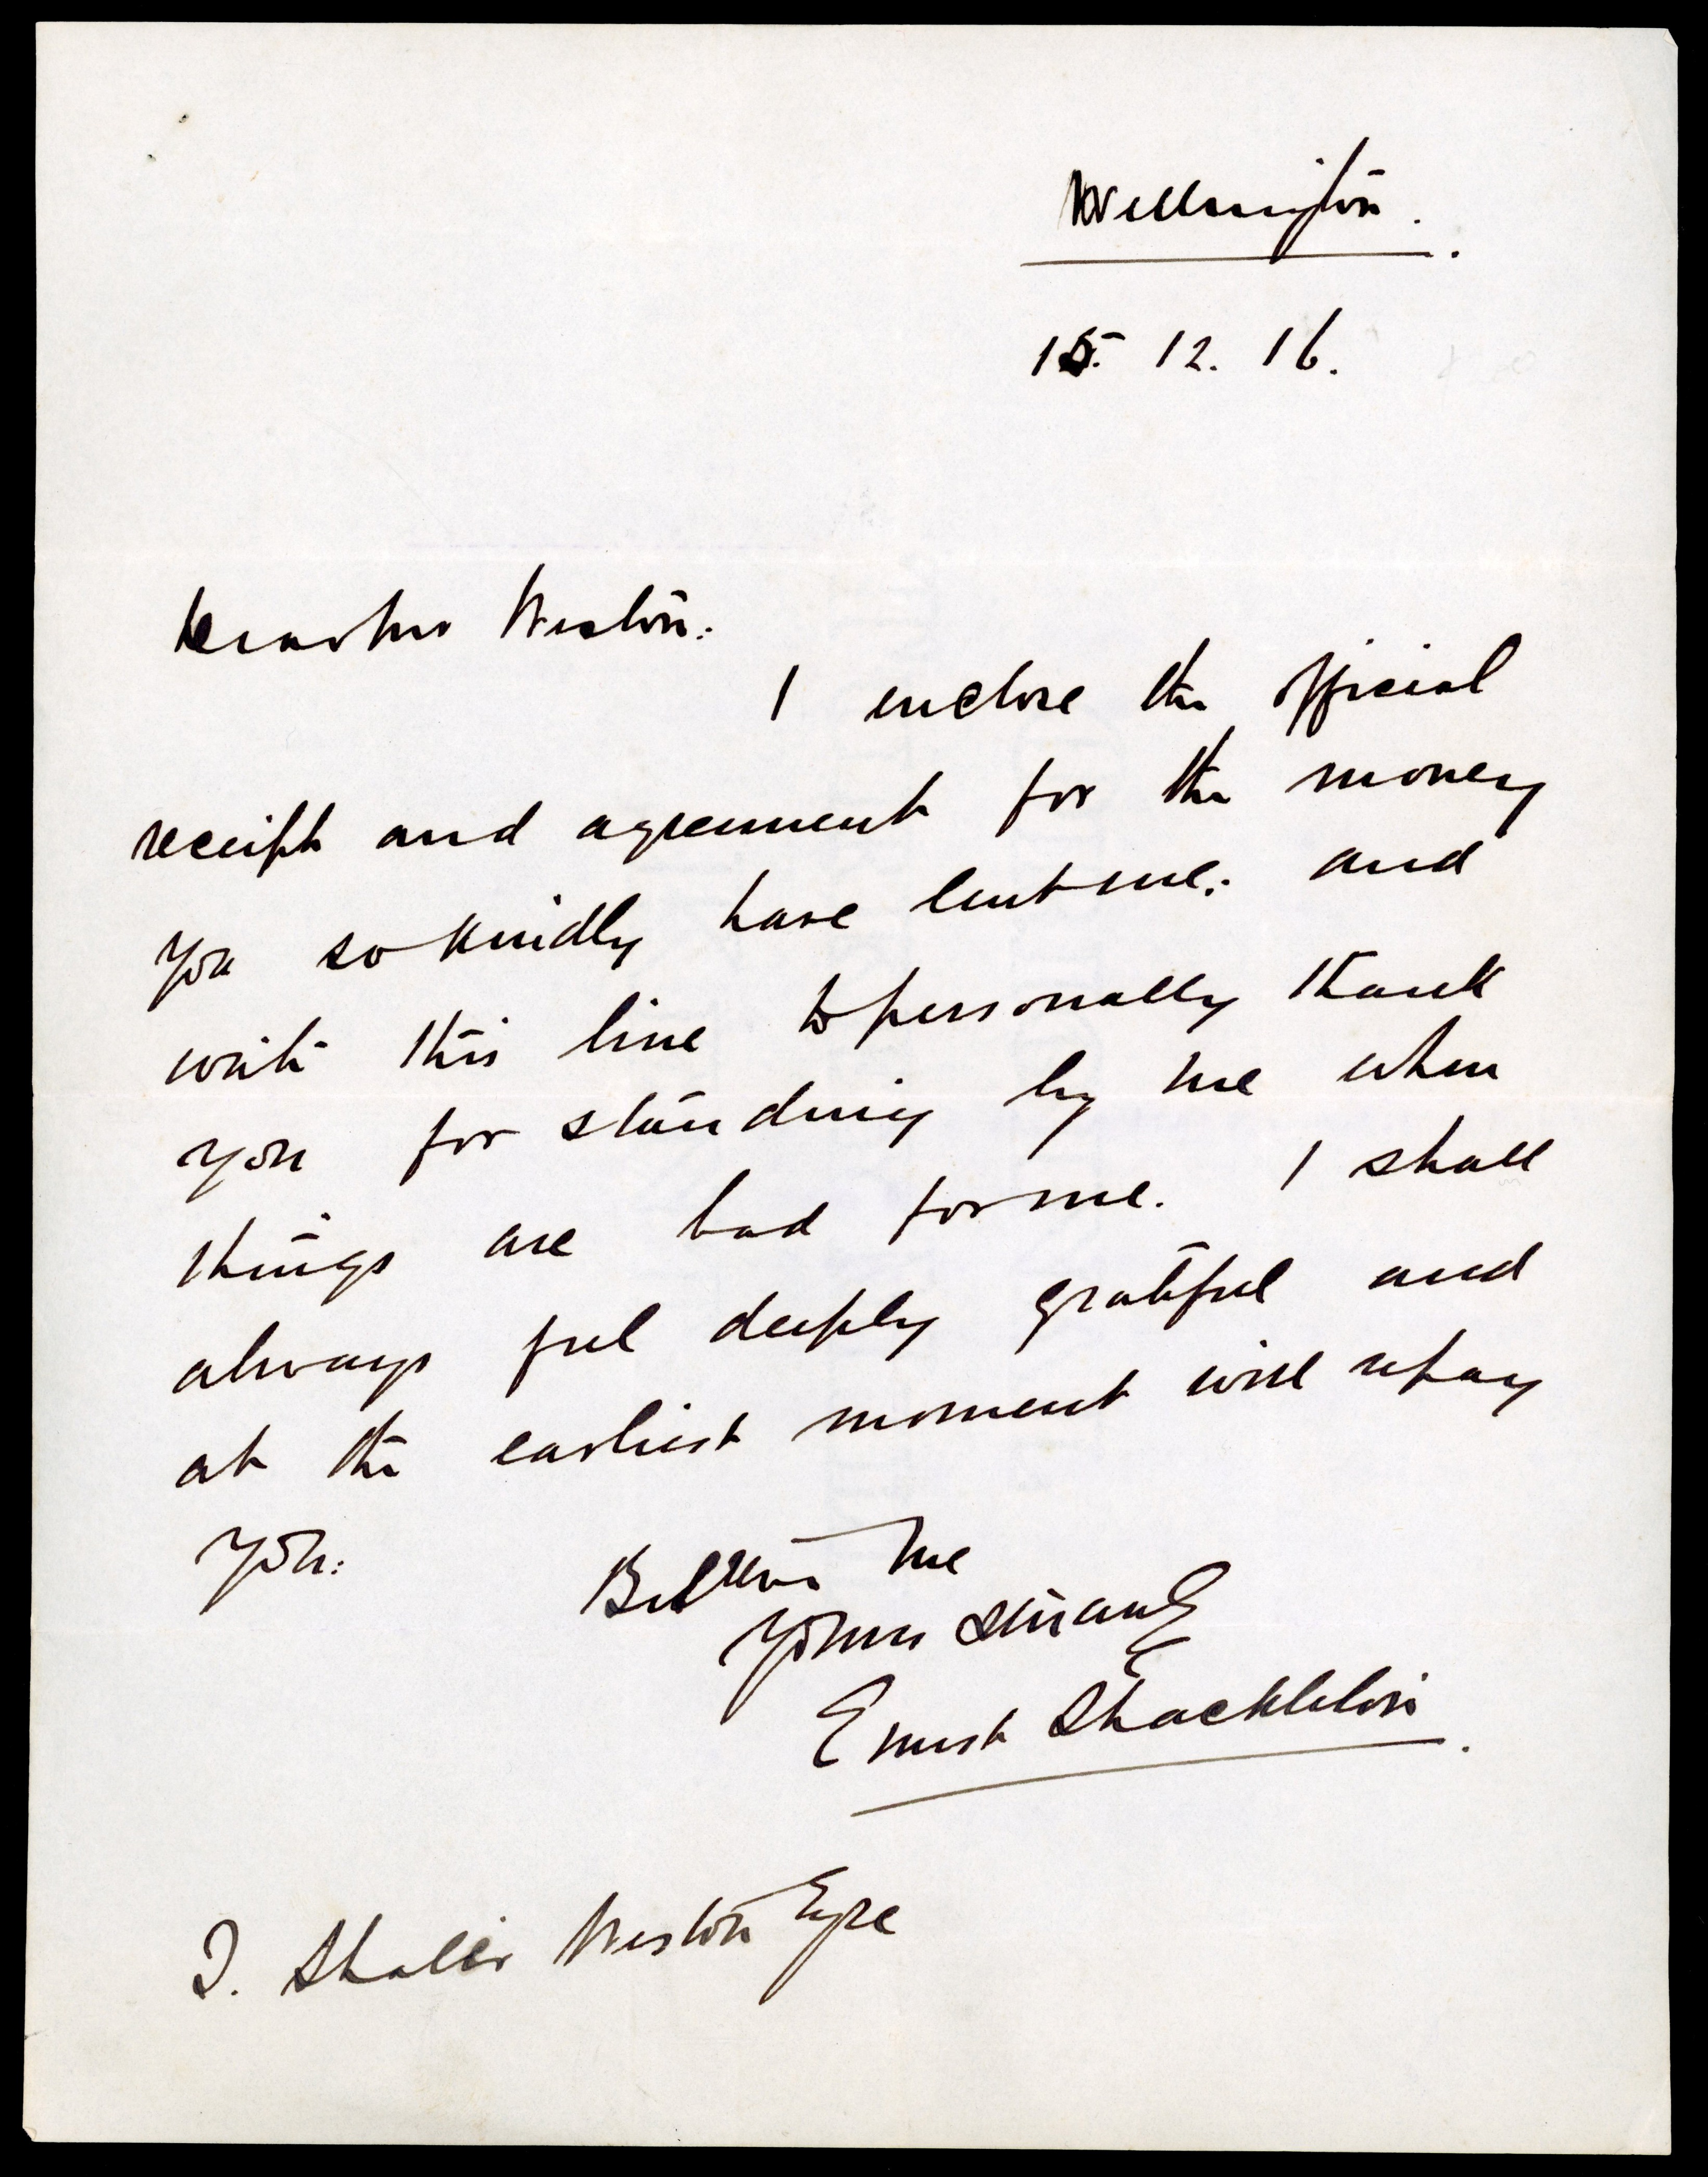 Wellington.
15. 12. 16.
Dear Mr Weston:
I enclose the official
receipt and agreement for the money
you so kindly have lent me: and
write this line to personally thank
you for standing by me when
things are bad for me. I shall
always feel deeply grateful and
at the earliest moment will repay
you:
Believe me
Yours sincerely
Ernest Shackleton.
T. Shailer Weston Eqre